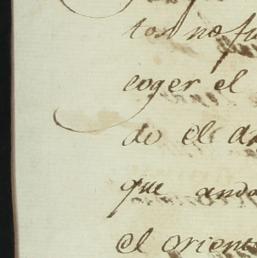 ton no fu
coger el
do el da
que anda
el orien